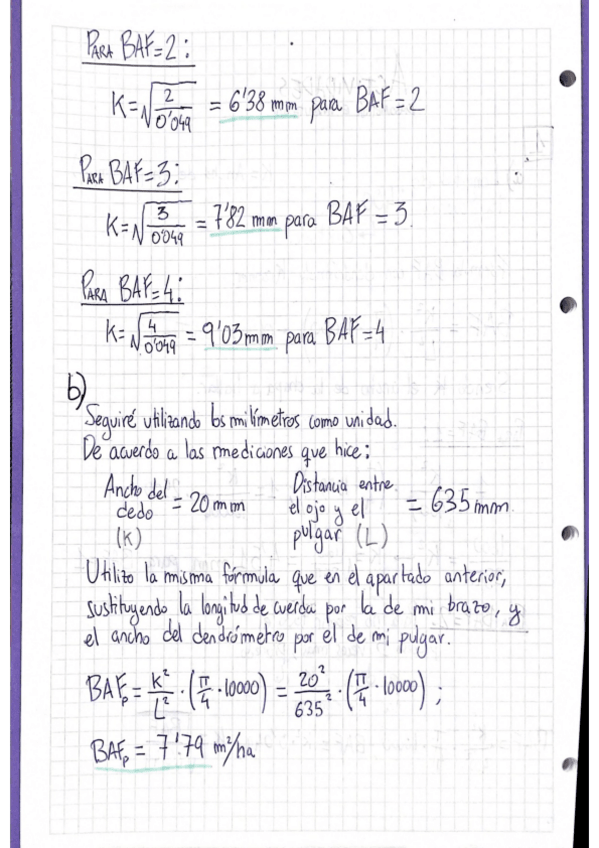 PARA BAF=2:
K=√(2/0'049) = 6'38 mm para BAF=2
PARA BAF=3:
K=√(3/0'049) = 7'82 mm para BAF=3.
PARA BAF=4:
K=√(4/0'049) = 9'03 mm para BAF=4
b)
Seguiré utilizando los milímetros como unidad.
De acuerdo a las mediciones que hice:
Ancho del dedo (K) = 20 mm
Distancia entre el ojo y el pulgar (L) = 635 mm.
Utilizo la misma fórmula que en el apartado anterior,
sustituyendo la longitud de cuerda por la de mi brazo, y
el ancho del dendrómetro por el de mi pulgar.
BAFp = K²/L² · (π/4 · 10000) = 20²/635² · (π/4 · 10000) ;
BAFp = 7'79 m²/ha